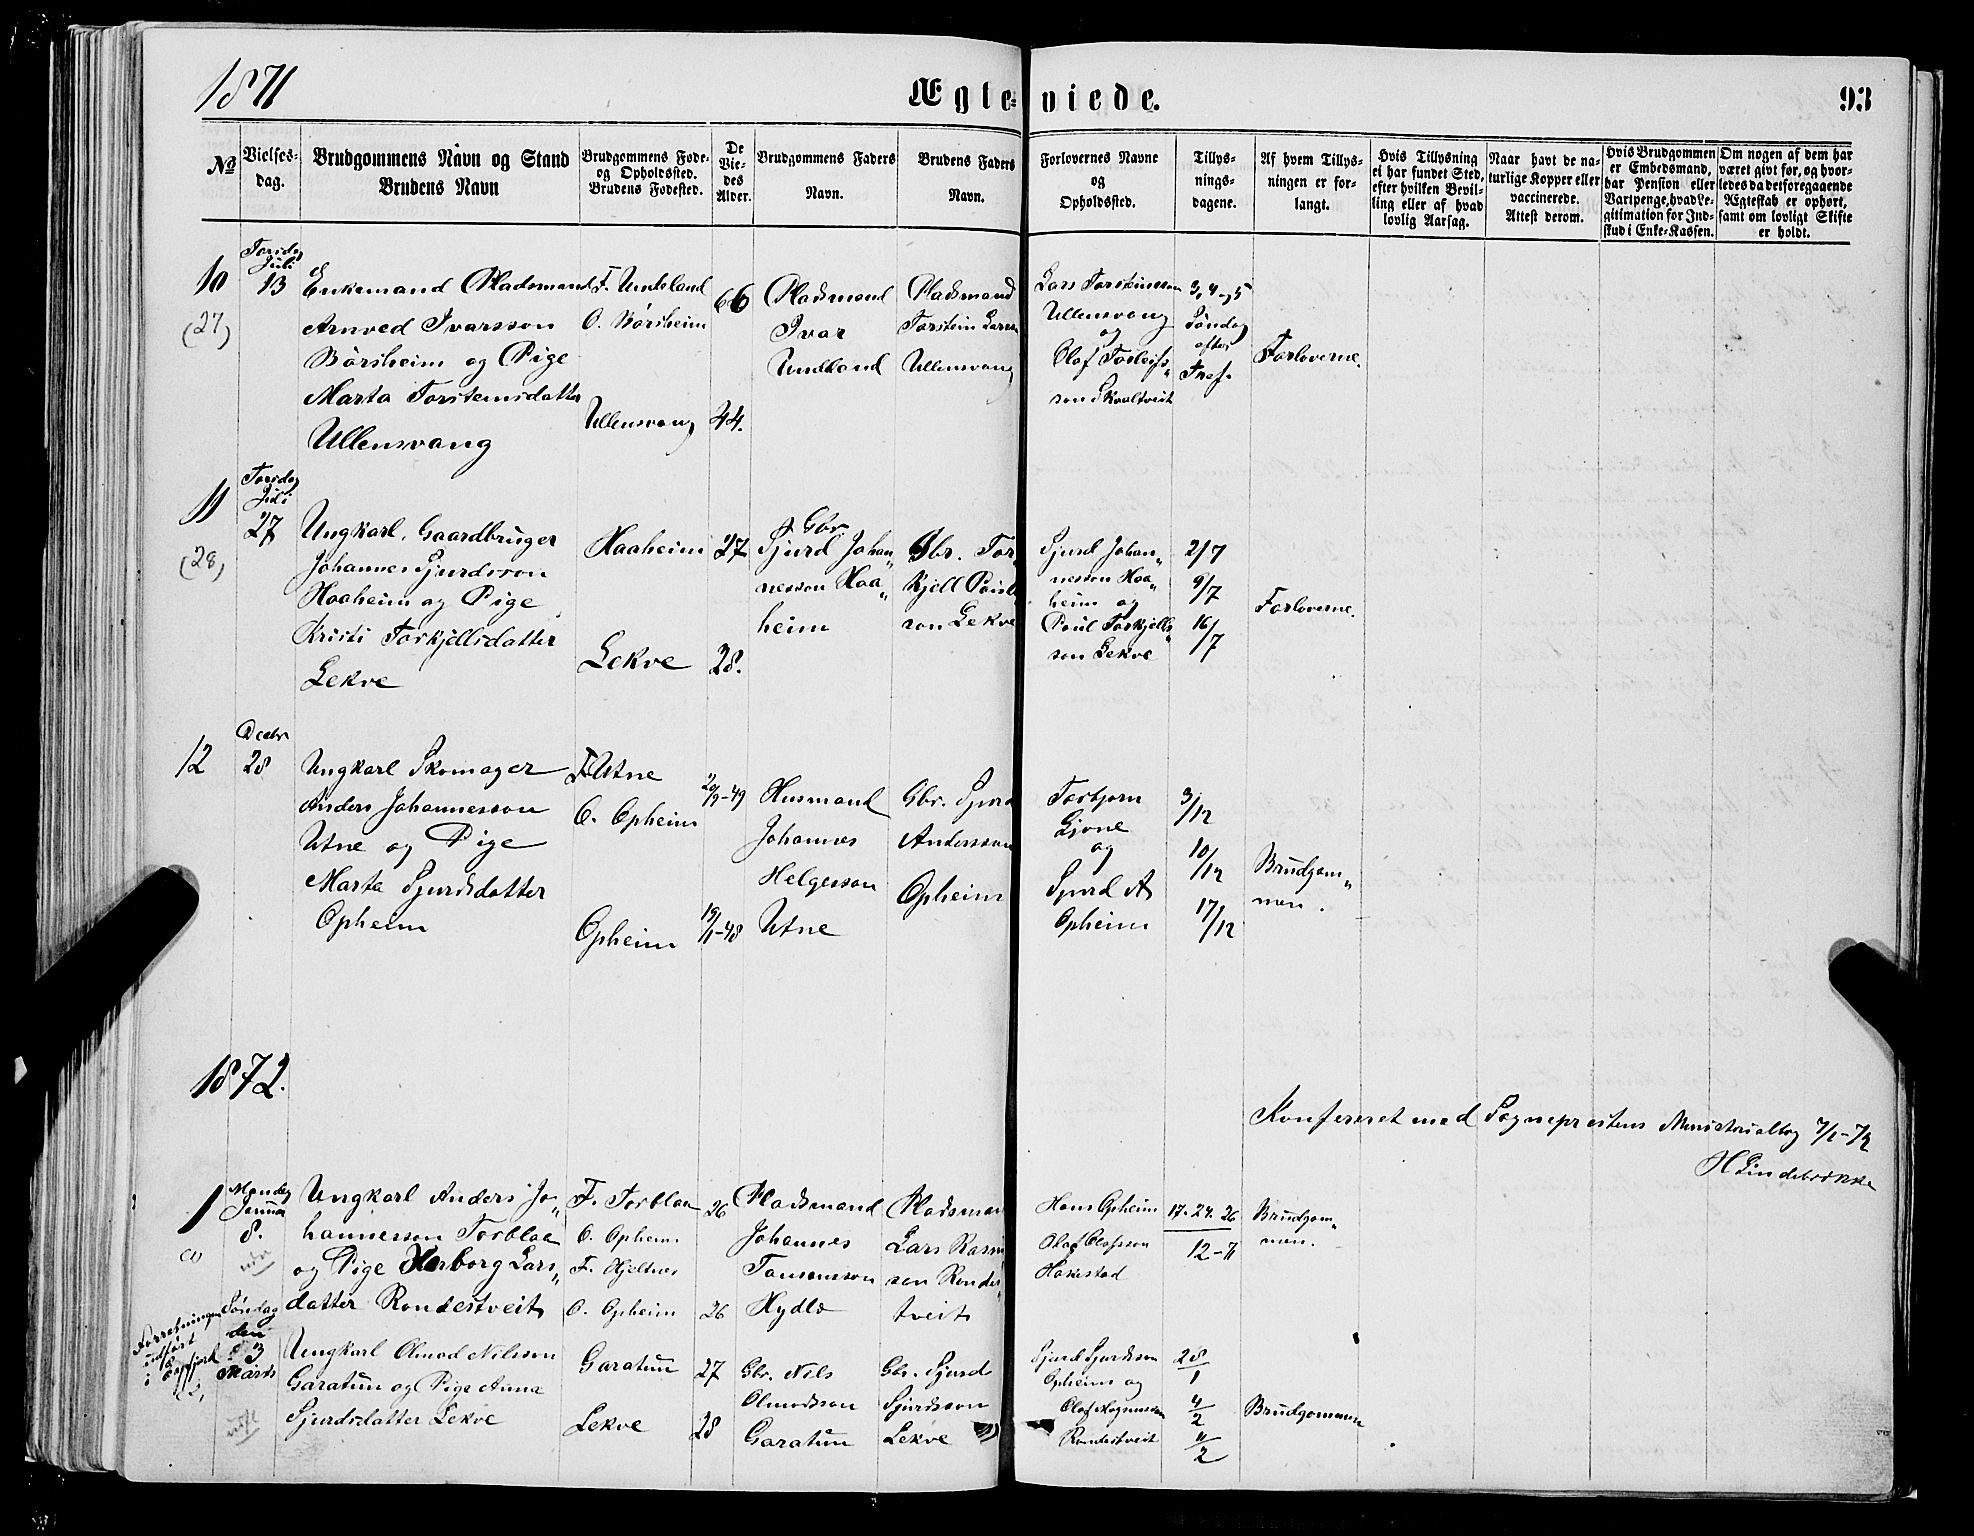 1871
Ægteviede.
93
No
Vielses-
dag.
Brudgommens Navn og Stand
Brudens Navn
Brudgommens Føde-
og Opholdssted.
Brudens Fødested.
De
Vie-
des
Alder.
Brudgommens Faders
Navn.
Brudens Faders
Navn.
Forlovernes Navne
og
Opholdssted.
Tillys-
nings-
dagene.
Af hvem Tillys-
ningen er for-
langt.
Hvis Tillysning
ei har fundet Sted,
efter hvilken Bevil-
ling eller af hvad
lovlig Aarsag.
Naar havt de na-
turlige Kopper eller
vaccinerede.
Attest derom.
Hvis Brudgommen
er Embedsmand,
har Pension eller
Vartpenge, hvad Le-
gitimation for Ind-
skud i Enke-Kassen.
Om nogen af dem har
været givt før, og hvor-
ledes da det foregaaende
Ægteskab er ophørt,
samt om lovligt Skifte
er holdt.
10
(27)
Torsdag
Juli
13
Enkemand Pladsmand
Arnved Ivarsson
Børsheim og Pige
Marta Torsteinsdatter
Ullensvang
F. Undeland
O. Børsheim
Ullensvang
66
44.
Pladsmand
Ivar
Undland
Pladsmand
Torstein Larsson
Ullensvang
Lars Torsteinsson
Ullensvang
og
Olaf Torleifs„
son Skaaltveit
3, 4 og 5
Søndag
efter
Tref.
Forloverne.
11
(28)
Torsdag
Juli
27
Ungkarl, Gaardbruger
Johannes Sjurdsson
Haaheim og Pige
Kristi Torkjellsdatter
Lekve
Haaheim
Lekve
27
28.
Gbr.
Sjurd Johan„
nesson Haa„
heim
Gbr. Tor
kjell Pouls
son Lekve
Sjurd Johan„
nesson Haa„
heim og
Poul Torkjells„
son Lekve
2/7
9/7
16/7
Forloverne.
12
Decbr
28
Ungkarl Skomager
Anders Johannesson
Utne og Pige
Marta Sjurdsdatter
Opheim
F. Utne
O. Opheim
Opheim
20/9-49
19/1-48
Husmand
Johannes
Helgesson
Utne
Gbr. Sjurd
Andersson
Opheim
Torbjørn
Gjøne
og
Sjurd A
Opheim
3/12
10/12
17/12
Brudgom„
men.
1872.
Konfereret med Sogneprestens Ministerialbog 7/1-72
H Lindebrække
1
Mandag
Januar
8.
Ungkarl Anders Jo„
hannesson Torbloe
og Pige Herborg Lars„
datter Rondestveit
F. Torbloe
O. Opheim
F. Hjeltnes
O. Opheim
26
26
Pladsmand
Johannes
Tønsensson
Hydle
Pladsman
Lars Rasm
son Rondes
tveit
Hans Opheim
Olaf Olafsson
Hakestad
17. 24. 26
12-71
Brudgom„
men.
Forretningen
udført
i Eidfjord
Søndag
den
3
Marts
Ungkarl Olmod Nilsson
Garatun og Pige Anna
Sjurdsdatter Lekve
Garatun
Lekve
27
28
Gbr. Nils
Olmodsson
Garatun
Gbr. Sjurd
Sjurdsson
Lekve
Sjurd Sjurdsson
Opheim og
Olaf Magnusson
Rondestveit
28/1
4/2
11/2
Brudgommen